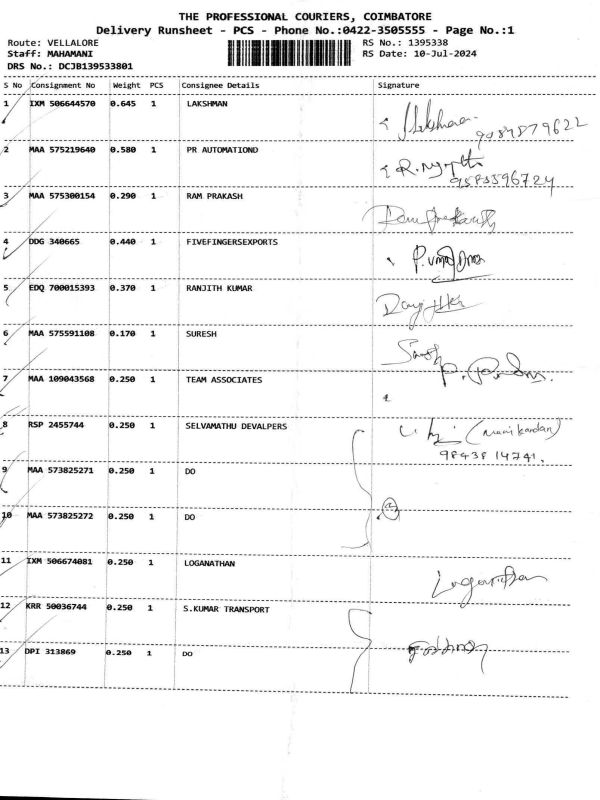 THE PROFESSIONAL COURIERS, COIMBATORE
Delivery Runsheet - PCS - Phone No.:0422-3505555 - Page No.:1
Route: VELLALORE RS No.: 1395338
Staff: MAHAMANI RS Date: 10-Jul-2024
DRS No.: DCJB139533801
S No Consignment No Weight PCS Consignee Details Signature
1 IXM 506644570 0.645 1 LAKSHMAN
2 MAA 575219640 0.580 1 PR AUTOMATIOND
3 MAA 575300154 0.290 1 RAM PRAKASH
4 DDG 340665 0.440 1 FIVEFINGERSEXPORTS
5 EDQ 700015393 0.370 1 RANJITH KUMAR
6 MAA 575591108 0.170 1 SURESH
7 MAA 109043568 0.250 1 TEAM ASSOCIATES
8 RSP 2455744 0.250 1 SELVAMATHU DEVALPERS (Manikandan)
98438 14741.
9 MAA 573825271 0.250 1 DO
10 MAA 573825272 0.250 1 DO
11 IXM 506674081 0.250 1 LOGANATHAN Loganathan
12 KRR 50036744 0.250 1 S.KUMAR TRANSPORT
13 DPI 313869 0.250 1 DO